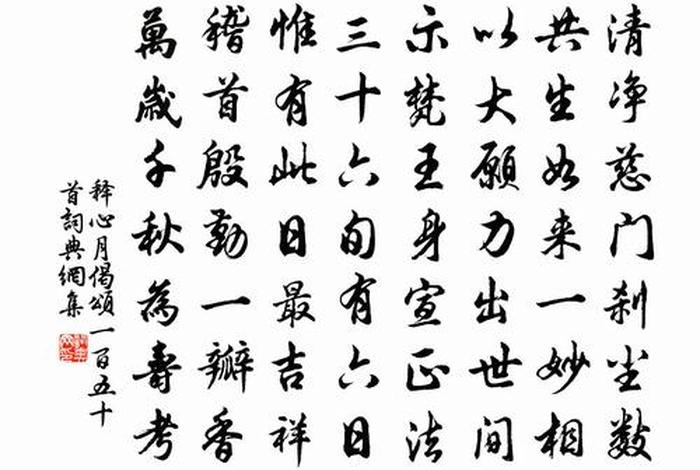 清净慈门刹尘数
共生如来一妙相
以大愿力出世间
示梵王身宣正法
三十六旬有六日
惟有此日最吉祥
稽首殷勤一瓣香
萬歲千秋為壽考
释心月偈頌一百五十
首詞典網集